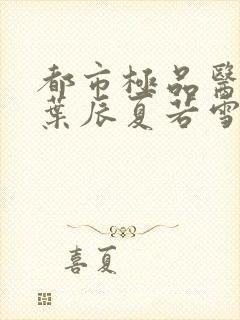 都市極品醫
葉辰夏若雪
喜夏